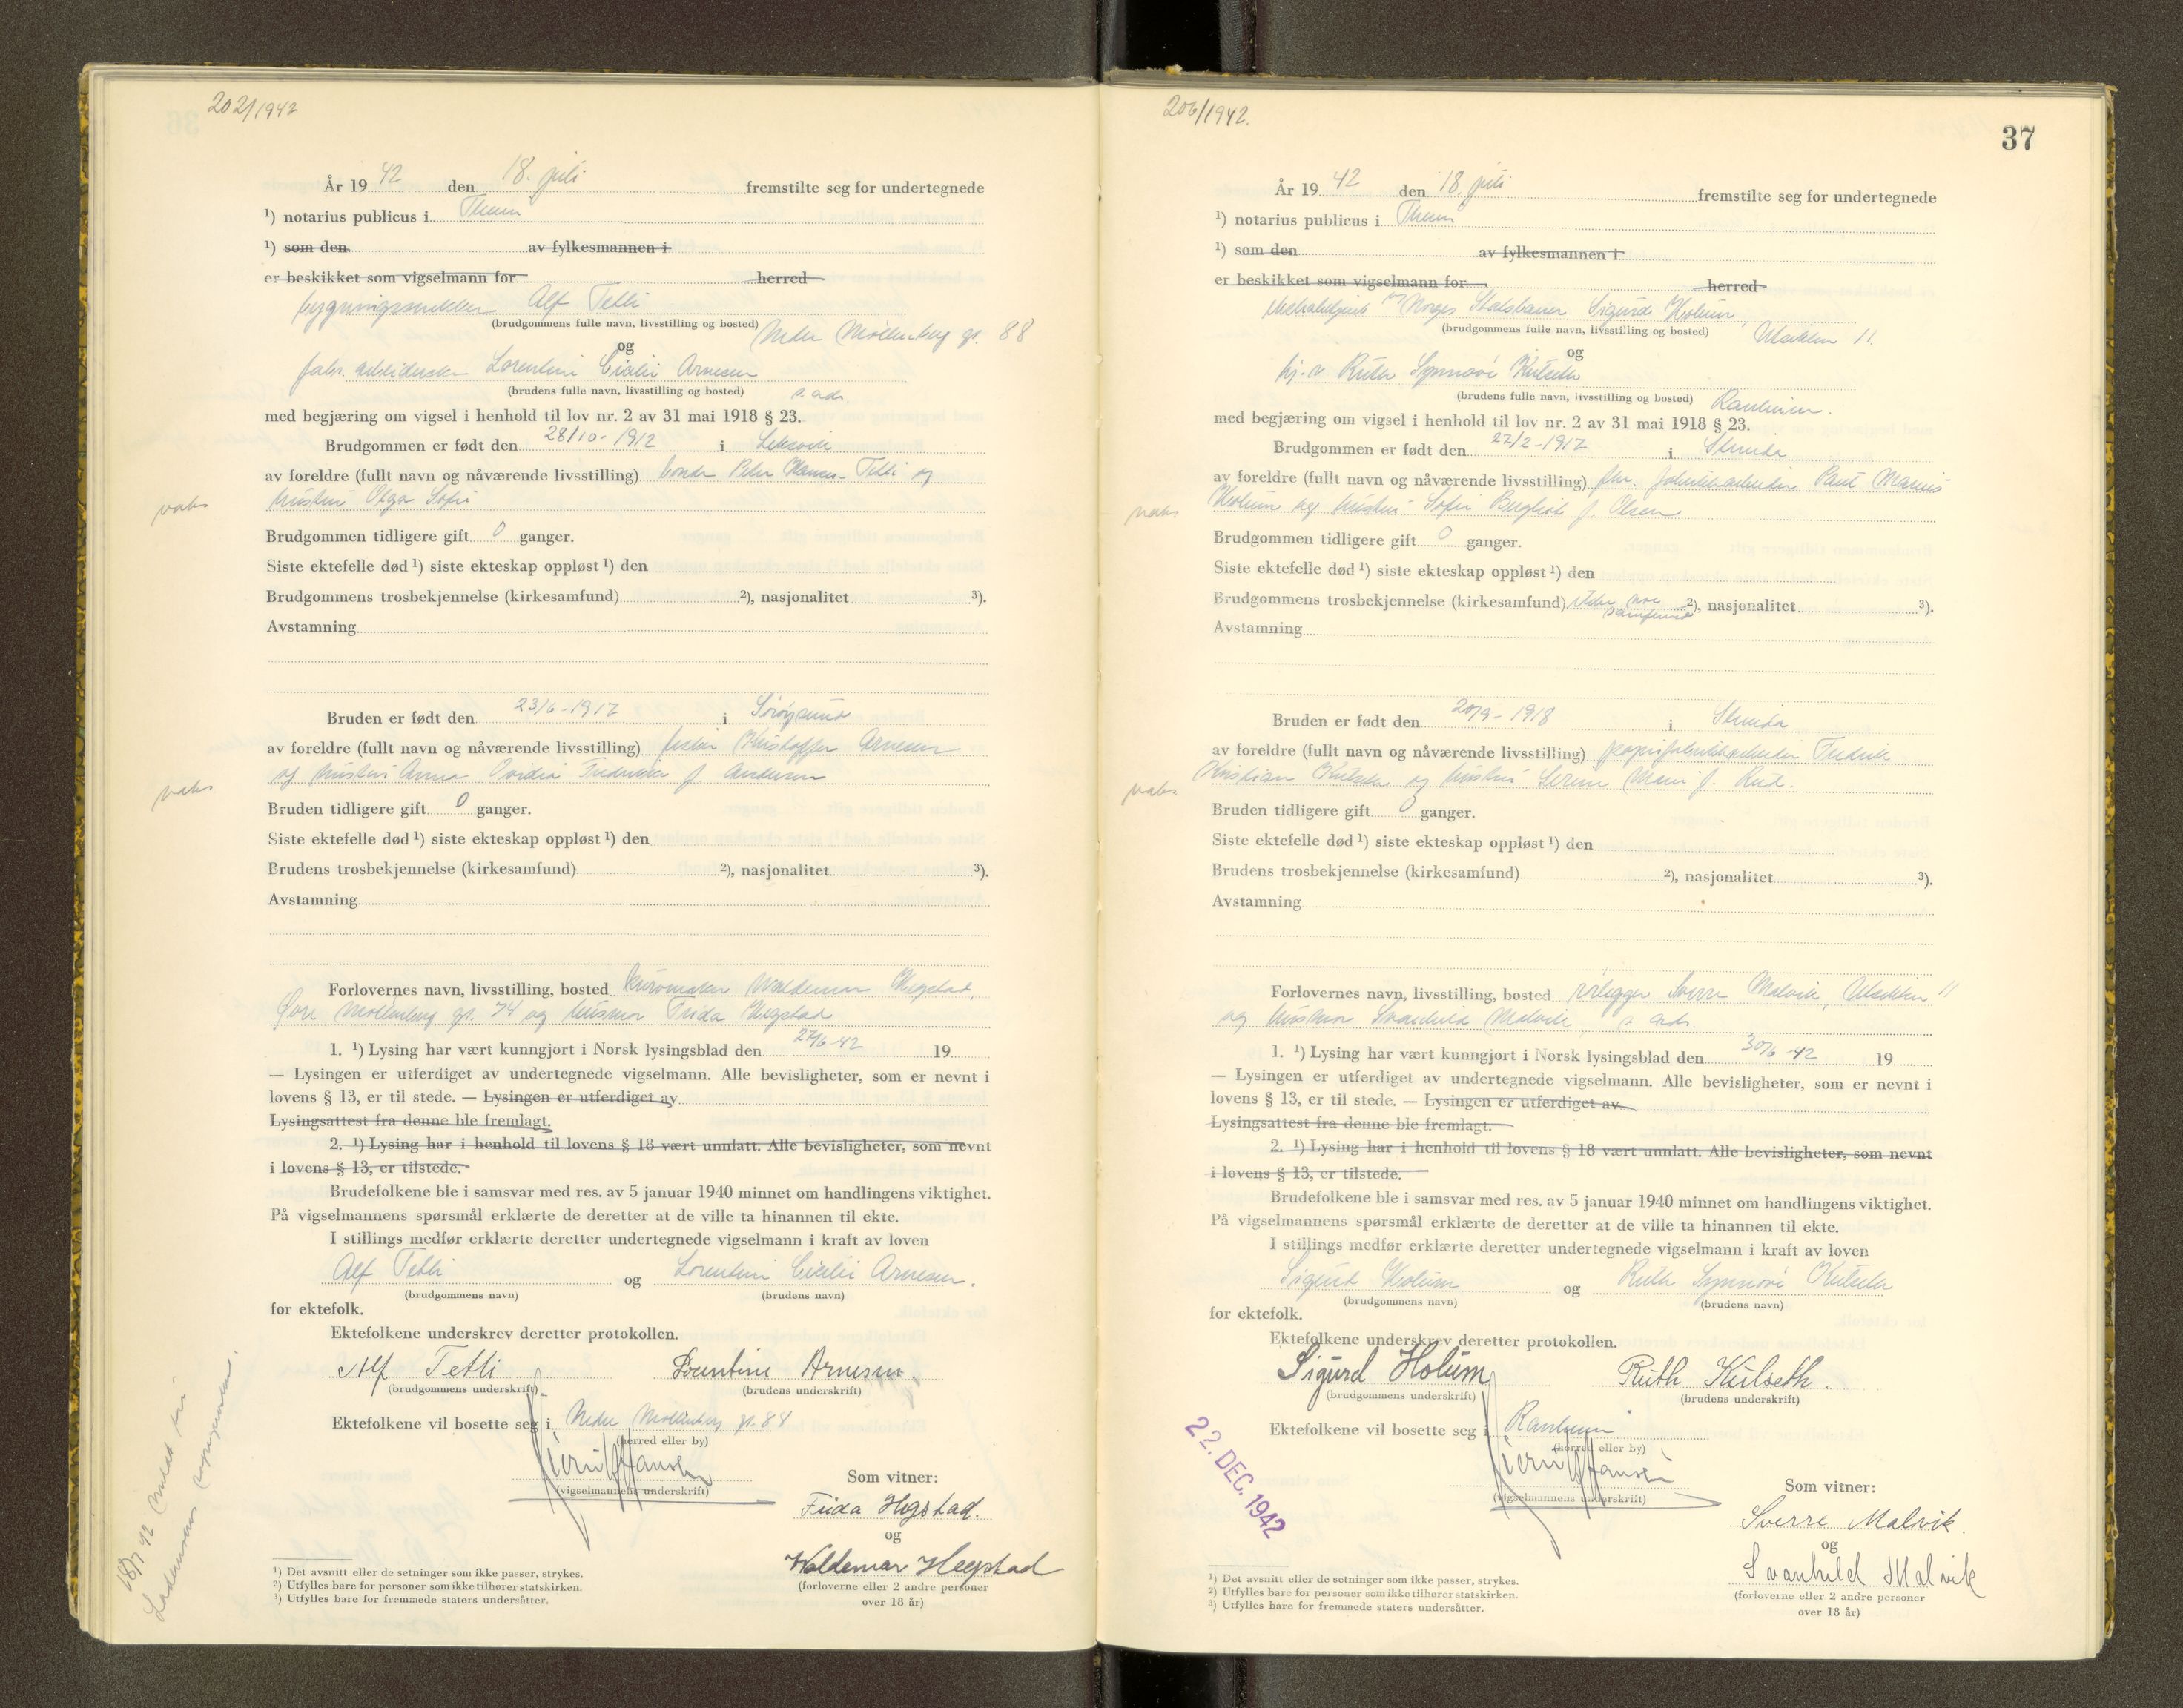 202/1942
År 19 42 den 18. juli fremstilte seg for undertegnede
¹) notarius publicus i Thum
¹) som den av fylkesmannen i
er beskikket som vigselmann for herred
bygningssnekker Alf Tetli
(brudgommens fulle navn, livsstilling og bosted) Nedre Möllenberg gt. 88
og
fabr. arbeiderske Lorentine Cicilie Arnesen
(brudens fulle navn, livsstilling og bosted) s. adr.
med begjæring om vigsel i henhold til lov nr. 2 av 31 mai 1918 § 23.
Brudgommen er født den 28/10-1912 i Leksvik
av foreldre (fullt navn og nåværende livsstilling) bonde Peter Hansen Tetli og
hustru Olga Sofie
vaks
Brudgommen tidligere gift 0 ganger.
Siste ektefelle død ¹) siste ekteskap oppløst ¹) den
Brudgommens trosbekjennelse (kirkesamfund) ²), nasjonalitet ³).
Avstamning
Bruden er født den 23/6-1917 i Sörøysund
av foreldre (fullt navn og nåværende livsstilling) fisker Kristoffer Arnesen
og hustru Anna Ovidia Fredrikke f. Andersen
vaks
Bruden tidligere gift 0 ganger.
Siste ektefelle død ¹) siste ekteskap oppløst ¹) den
Brudens trosbekjennelse (kirkesamfund) ²), nasjonalitet ³).
Avstamning
Forlovernes navn, livsstilling, bosted kurvmaker Waldemar Hegstad,
Övre Möllenberg gt. 74 og husmor Frida Hegstad
1. ¹) Lysing har vært kunngjort i Norsk lysingsblad den 27/6-42 19
— Lysingen er utferdiget av undertegnede vigselmann. Alle bevisligheter, som er nevnt i
lovens § 13, er til stede. — Lysingen er utferdiget av
Lysingsattest fra denne ble fremlagt.
2. ¹) Lysing har i henhold til lovens § 18 vært unnlatt. Alle bevisligheter, som nevnt
i lovens § 13, er tilstede.
Brudefolkene ble i samsvar med res. av 5 januar 1940 minnet om handlingens viktighet.
På vigselmannens spørsmål erklærte de deretter at de ville ta hinannen til ekte.
I stillings medfør erklærte deretter undertegnede vigselmann i kraft av loven
Alf Tetli og Lorentine Cicilie Arnesen.
(brudgommens navn) (brudens navn)
for ektefolk.
Ektefolkene underskrev deretter protokollen.
Alf Tetli Lorentine Arnesen.
(brudgommens underskrift) (brudens underskrift)
Ektefolkene vil bosette seg i Nedre Möllenberg gt. 88
(herred eller by)
(vigselmannens underskrift)
Som vitner:
Frida Hegstad.
og
Waldemar Hegstad
(forloverne eller 2 andre personer
over 18 år)
18/7 42 meldt til
Lademoens sogneprest.
¹) Det avsnitt eller de setninger som ikke passer, strykes.
²) Utfylles bare for personer som ikke tilhører statskirken.
¹) Utfylles bare for fremmede staters undersåtter.
206/1942.
37
År 19 42 den 18. juli fremstilte seg for undertegnede
¹) notarius publicus i Thum
¹) som den av fylkesmannen i
er beskikket som vigselmann for herred
ved Norges Statsbaner Sigurd Holum,
(brudgommens fulle navn, livsstilling og bosted) Utsikten 11.
og
Ruth Synnøve Kulseth
(brudens fulle navn, livsstilling og bosted) Ranheim.
med begjæring om vigsel i henhold til lov nr. 2 av 31 mai 1918 § 23.
Brudgommen er født den 27/2-1917 i Strinda
av foreldre (fullt navn og nåværende livsstilling) fhv. fabrikkarbeider Paul Marius
Holum og hustru Sofie Bergliot f. Olsen
vaks
Brudgommen tidligere gift 0 ganger.
Siste ektefelle død ¹) siste ekteskap oppløst ¹) den
Brudgommens trosbekjennelse (kirkesamfund) uten noe samfund ²), nasjonalitet ³).
Avstamning
Bruden er født den 20/9-1918 i Strinda
av foreldre (fullt navn og nåværende livsstilling) papirfabrikkarbeider Fredrik
Kristian Kulseth og hustru Serine Marie f. Rud.
vaks
Bruden tidligere gift 0 ganger.
Siste ektefelle død ¹) siste ekteskap oppløst ¹) den
Brudens trosbekjennelse (kirkesamfund) ²), nasjonalitet ³).
Avstamning
Forlovernes navn, livsstilling, bosted rørlegger Sverre Malvik, Utsikten 11
og husmor Svanhild Malvik, s. adr.
1. ¹) Lysing har vært kunngjort i Norsk lysingsblad den 30/6-42 19
— Lysingen er utferdiget av undertegnede vigselmann. Alle bevisligheter, som er nevnt i
lovens § 13, er til stede. — Lysingen er utferdiget av
Lysingsattest fra denne ble fremlagt.
2. ¹) Lysing har i henhold til lovens § 18 vært unnlatt. Alle bevisligheter, som nevnt
i lovens § 13, er tilstede.
Brudefolkene ble i samsvar med res. av 5 januar 1940 minnet om handlingens viktighet.
På vigselmannens spørsmål erklærte de deretter at de ville ta hinannen til ekte.
I stillings medfør erklærte deretter undertegnede vigselmann i kraft av loven
Sigurd Holum og Ruth Synnøve Kulseth
(brudgommens navn) (brudens navn)
for ektefolk.
Ektefolkene underskrev deretter protokollen.
Sigurd Holum Ruth Kulseth.
(brudgommens underskrift) (brudens underskrift)
Ektefolkene vil bosette seg i Ranheim
(herred eller by)
(vigselmannens underskrift)
22. DEC. 1942
Som vitner:
Sverre Malvik.
og
Svanhild Malvik
(forloverne eller 2 andre personer
over 18 år)
¹) Det avsnitt eller de setninger som ikke passer, strykes.
²) Utfylles bare for personer som ikke tilhører statskirken.
³) Utfylles bare for fremmede staters undersåtter.